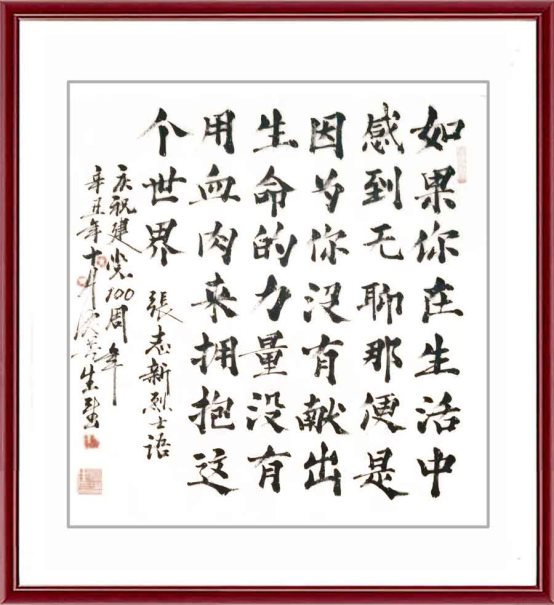 如果你在生活中
感到无聊那便是
因为你没有献出
生命的力量没有
用血肉来拥抱这
个世界
張志新烈士语
庆祝建党100周年
辛丑年十月